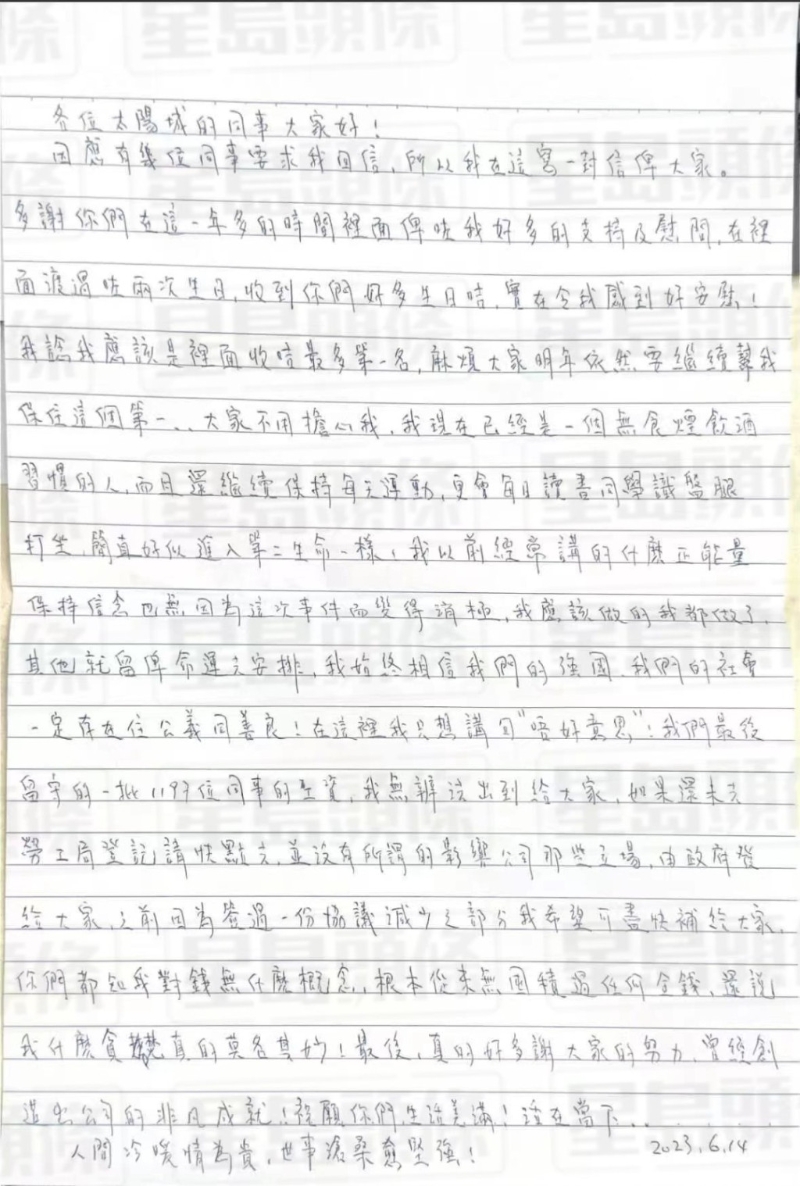 星島頭條
各位太陽城的同事大家好！
因應有幾位同事要求我回信，所以我在這寫一封信俾大家。
多謝你們在這一年多的時間裡面俾咗我好多的支持及慰問，在裡
面渡過咗兩次生日，收到你們好多生日咭，實在令我感到好安慰！
我諗我應該是裡面收咭最多第一名，麻煩大家明年依然要繼續幫我
保住這個第一、、大家不用擔心我，我現在已經是一個無食煙飲酒
習慣的人，而且還繼續保持每天運動，更會每日讀書同學識盤腿
打坐，簡真好似進入第二生命一樣！我以前經常講的什麼正能量
保持信念也無因為這次事件而變得消極，我應該做的我都做了，
其他就留俾命運去安排，我始終相信我們的強國，我們的社會
一定存在住公義同善良！在這裡我只想講回"唔好意思"！我們最後
留守的一批1197位同事的工資，我無辦法出到給大家，如果還未去
勞工局登記請快點去，並沒有所謂的影響公司那些立場，由政府發
給大家，之前因為簽過一份協議減少之部分我希望可盡快補給大家，
你們都知我對錢無什麼概念，根本從來無囤積過任何金錢，還說
我什麼貪婪真的莫名其妙！最後，真的好多謝大家的努力，曾經創
造出公司的非凡成就！祝願你們生活美滿！活在當下......
人間冷暖情為貴，世事滄桑愈堅強！ 2023.6.14